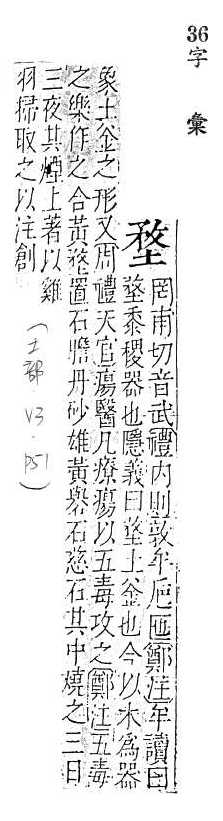 36字彙
堥
罔甫切音武禮內則敦牟卮匜鄭注牟讀曰
堥黍稷器也隱義曰堥土釜也今以木為器
象土釜之形又周禮天官瘍醫凡療瘍以五毒攻之鄭注五毒
之樂作之合黃堥置石膽丹砂雄黃礜石慈石其中燒之三日
三夜其煙上著以雞
羽掃取之以注創
(土部．V3．P51)